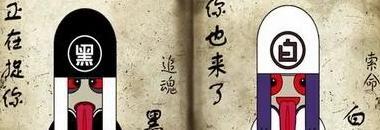 正在捉你
黑
追魂
黑
你也来了
白
索命
白